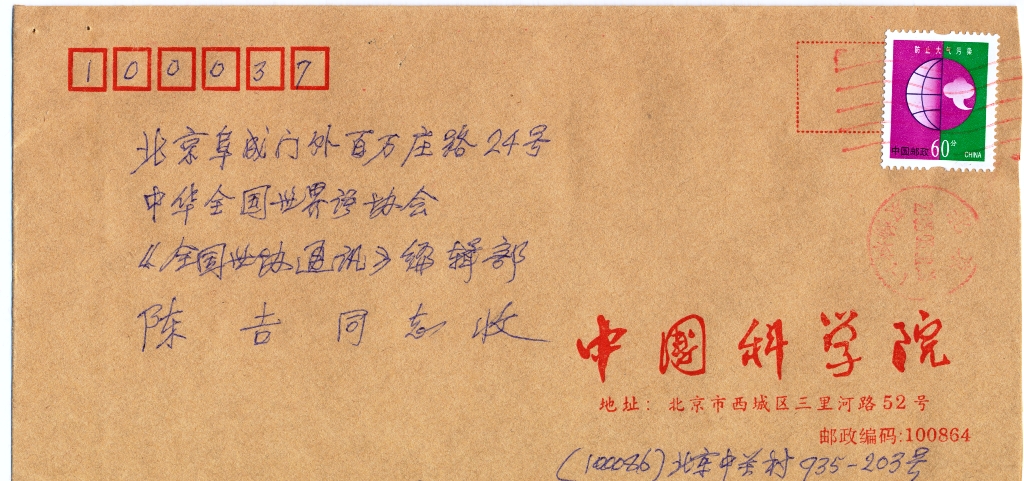 100037
防止大气污染
中国邮政 60分 CHINA
北京阜成门外百万庄路24号
中华全国世界语协会
《全国世协通讯》编辑部
陈吉同志收
中国科学院
地址：北京市西城区三里河路52号
邮政编码:100864
(100086)北京中关村935-203号